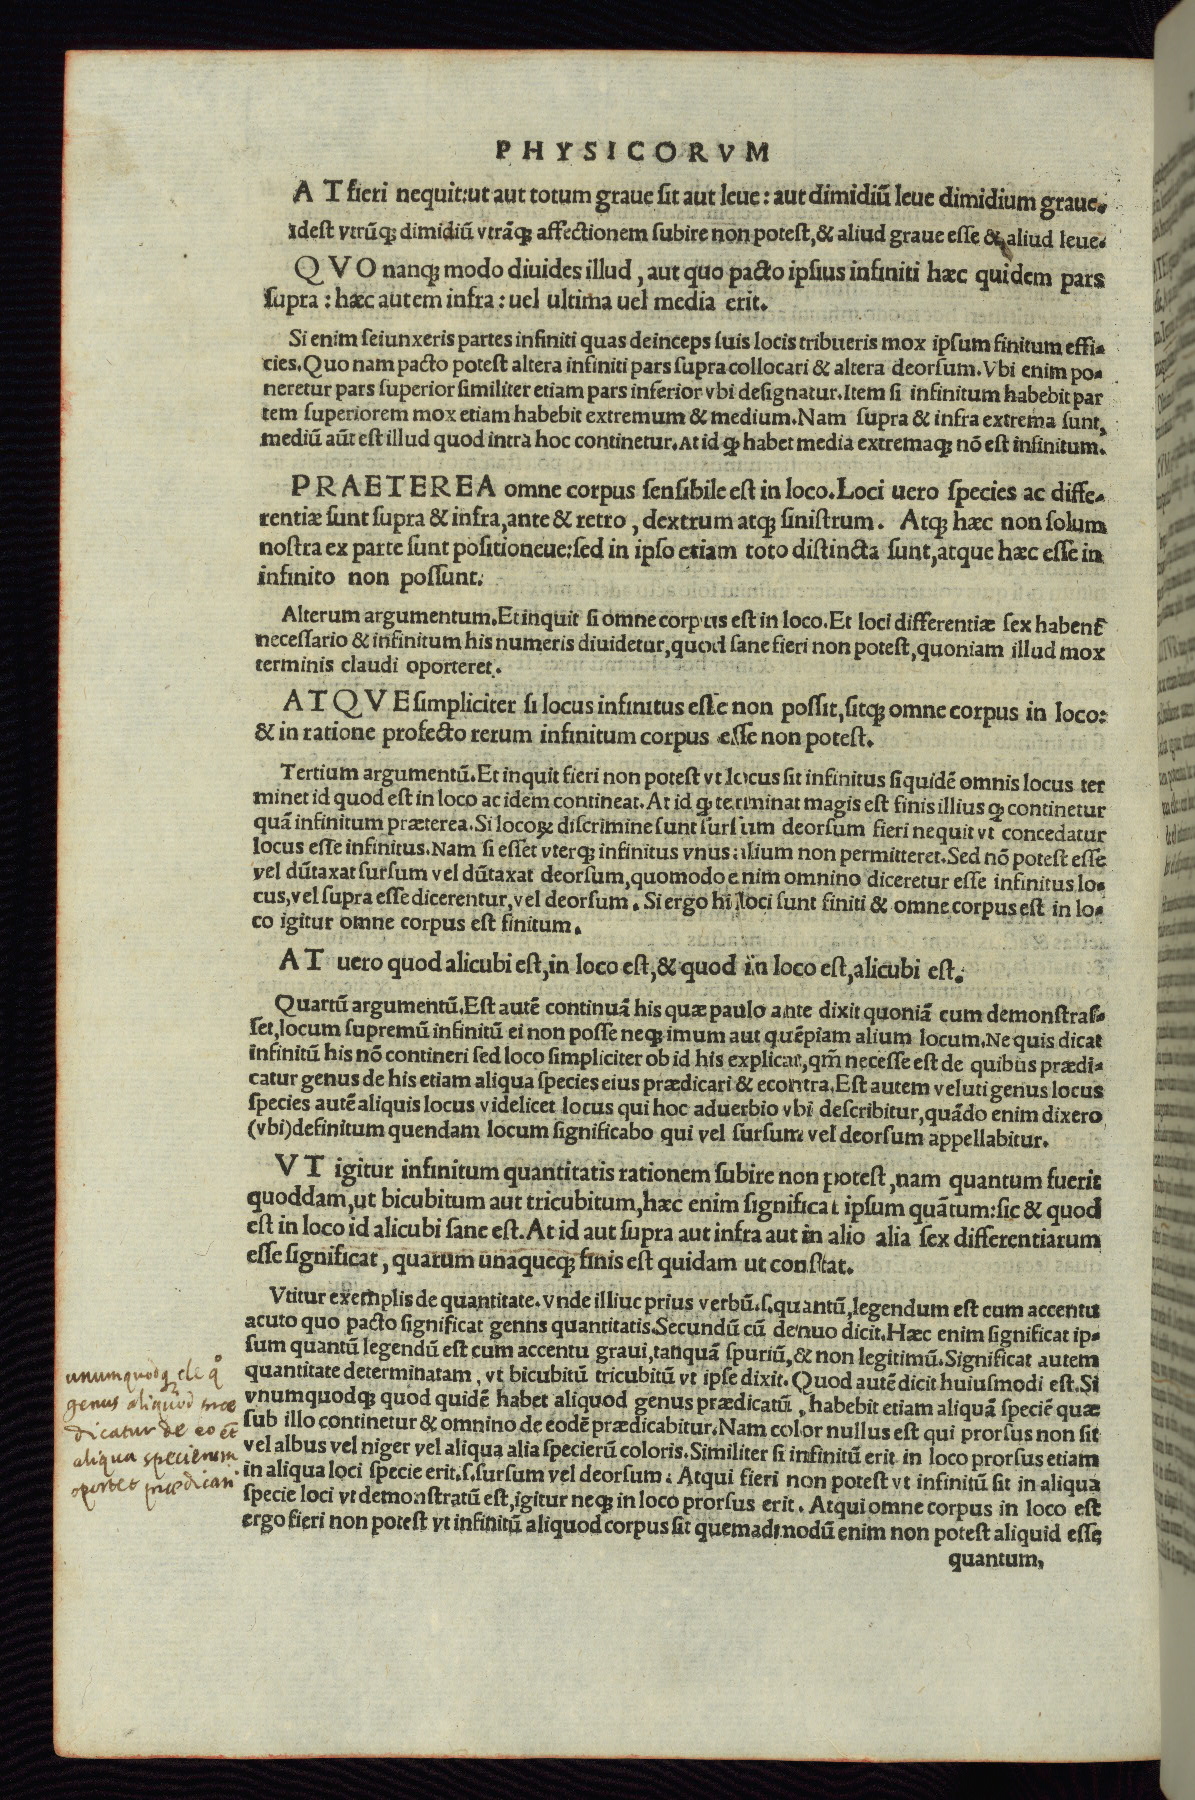 PHYSICORVM
AT fieri nequit:ut aut totum graue sit aut leue: aut dimidiũ leue dimidium graue.
idest vtrũq; dimidiũ vtrãq; affectionem subire non potest,& aliud graue esse & aliud leue.
QVO nanq; modo diuides illud, aut quo pacto ipsius infiniti hæc quidem pars
supra: hæc autem infra: uel ultima uel media erit.
Si enim seiunxeris partes infiniti quas deinceps suis locis tribueris mox ipsum finitum effi-
cies.Quo nam pacto potest altera infiniti pars supra collocari & altera deorsum.Vbi enim po-
neretur pars superior similiter etiam pars inferior vbi designatur.Item si infinitum habebit par
tem superiorem mox etiam habebit extremum & medium.Nam supra & infra extrema sunt,
mediũ aũt est illud quod intra hoc continetur.At id ꝙ habet media extremaq; nõ est infinitum.
PRAETEREA omne corpus sensibile est in loco.Loci uero species ac diffe-
rentiæ sunt supra & infra,ante & retro, dextrum atq; sinistrum. Atq; hæc non solum
nostra ex parte sunt positioneue:sed in ipso etiam toto distincta sunt,atque hæc esse in
infinito non possunt.
Alterum argumentum.Et inquit si omne corpus est in loco.Et loci differentiæ sex habent̃
necessario & infinitum his numeris diuidetur,quod sane fieri non potest,quoniam illud mox
terminis claudi oporteret.
ATQVE simpliciter si locus infinitus esse non possit,sitq; omne corpus in loco:
& in ratione profecto rerum infinitum corpus esse non potest.
Tertium argumentũ.Et inquit fieri non potest vt locus sit infinitus siquidẽ omnis locus ter
minet id quod est in loco ac idem contineat.At id ꝙ terminat magis est finis illius ꝙ continetur
quã infinitum præterea.Si locoꝝ discrimine sunt sursum deorsum fieri nequit vt concedatur
locus esse infinitus.Nam si esset vterq; infinitus vnus alium non permitteret.Sed nõ potest esse
vel dũtaxat sursum vel dũtaxat deorsum,quomodo enim omnino diceretur esse infinitus lo-
cus,vel supra esse dicerentur,vel deorsum. Si ergo hi loci sunt finiti & omne corpus est in lo-
co igitur omne corpus est finitum.
AT uero quod alicubi est,in loco est,& quod in loco est,alicubi est.
Quartũ argumentũ.Est autẽ continuã his quæ paulo ante dixit quoniã cum demonstras-
set,locum supremũ infinitũ ei non posse neq; imum aut quẽpiam alium locum.Ne quis dicat
infinitũ his nõ contineri sed loco simpliciter ob id his explicat,qm̃ necesse est de quibus prædi-
catur genus de his etiam aliqua species eius prædicari & econtra.Est autem veluti genus locus
species autẽ aliquis locus videlicet locus qui hoc aduerbio vbi describitur,quãdo enim dixero
(vbi)definitum quendam locum significabo qui vel sursum vel deorsum appellabitur.
VT igitur infinitum quantitatis rationem subire non potest,nam quantum fuerit
quoddam,ut bicubitum aut tricubitum,hæc enim significat ipsum quãtum:sic & quod
est in loco id alicubi sane est.At id aut supra aut infra aut in alio alia sex differentiarum
esse significat, quarum unaqueq; finis est quidam ut constat.
Vtitur exemplis de quantitate.vnde illiuc prius verbũ.s.quantũ,legendum est cum accentu
acuto quo pacto significat genns quantitatis.Secundũ cũ denuo dicit.Hæc enim significat ip-
sum quantũ legendũ est cum accentu graui,tanquã spuriũ,& non legitimũ.Significat autem
quantitate determinatam, vt bicubitũ tricubitũ vt ipse dixit.Quod autẽ dicit huiusmodi est.Si
vnumquodq; quod quidẽ habet aliquod genus prædicatũ, habebit etiam aliquã speciẽ quæ
sub illo continetur & omnino de eodẽ prædicabitur.Nam color nullus est qui prorsus non sit
vel albus vel niger vel aliqua alia specierũ coloris.Similiter si infinitũ erit in loco prorsus etiam
in aliqua loci specie erit.s.sursum vel deorsum: Atqui fieri non potest vt infinitũ sit in aliqua
specie loci vt demonstratũ est,igitur neq; in loco prorsus erit. Atqui omne corpus in loco est
ergo fieri non potest vt infinitũ aliquod corpus sit quemadmodũ enim non potest aliquid esse
quantum,
unumquodq de q°
genus aliquod præ
dicatur de eo et̃
aliqua specierum
oportet prædicari